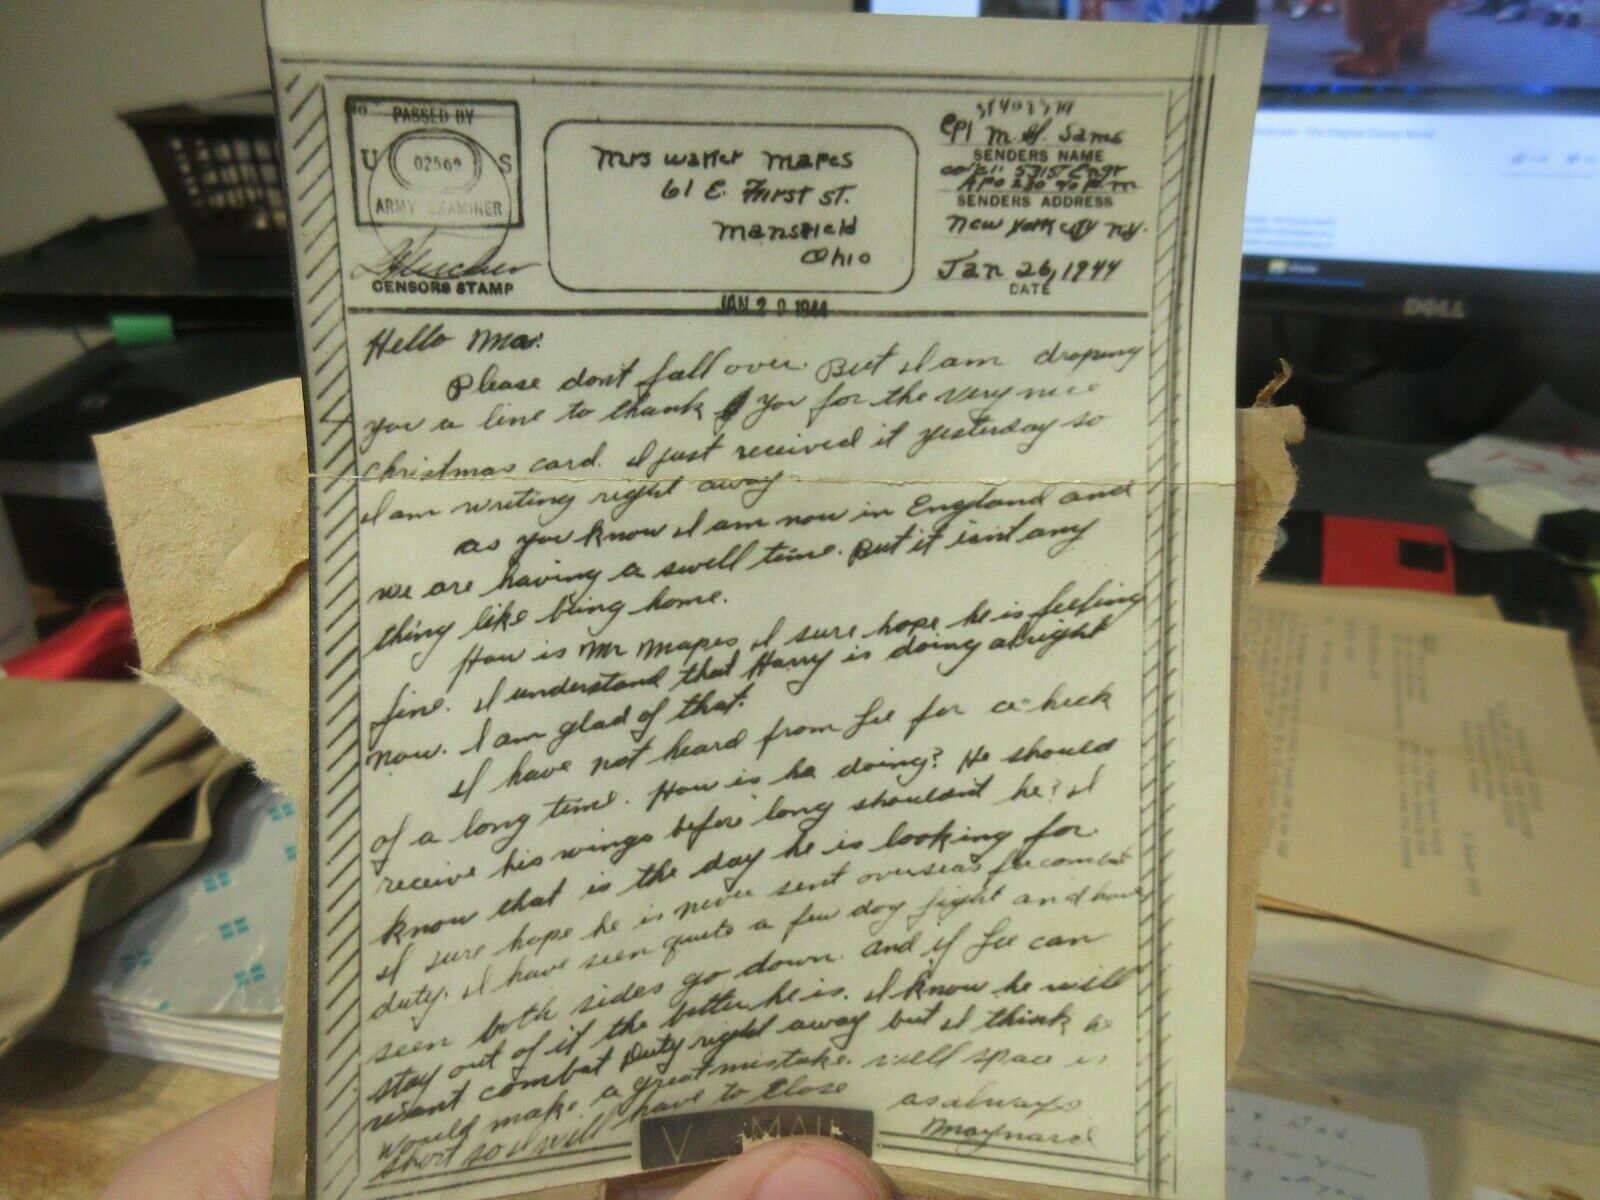 PASSED BY
U S
ARMY EXAMINER
CENSORS STAMP
Mrs Walter Mapes
61 E. First ST.
Mansfield
Ohio
Cpl M. G. Sams
SENDERS NAME
SENDERS ADDRESS
New York City NY.
Jan 26, 1944
DATE
JAN 2 1944
Hello Ma:
Please don't fall over. But I am droping
you a line to thank you for the very nice
christmas card. I just received it yesterday so
I am writing right away
as you know I am now in England and
we are having a swell time. But it isn't any
thing like being home.
How is Mr Mapes I sure hope he is feeling
fine. I understand that Harry is doing alright
now. I am glad of that.
I have not heard from Lee for a heck
of a long time. How is he doing? He should
receive his wings before long shouldn't he? I
know that is the day he is looking for
I sure hope he is never sent overseas for combat
duty. I have seen quite a few dog fight and have
seen both sides go down. and if Lee can
stay out of it the better he is. I know he will
want combat Duty right away but I think he
would make a great mistake. well space is
short so I will have to close
as always
Maynard
V MAIL
DELL